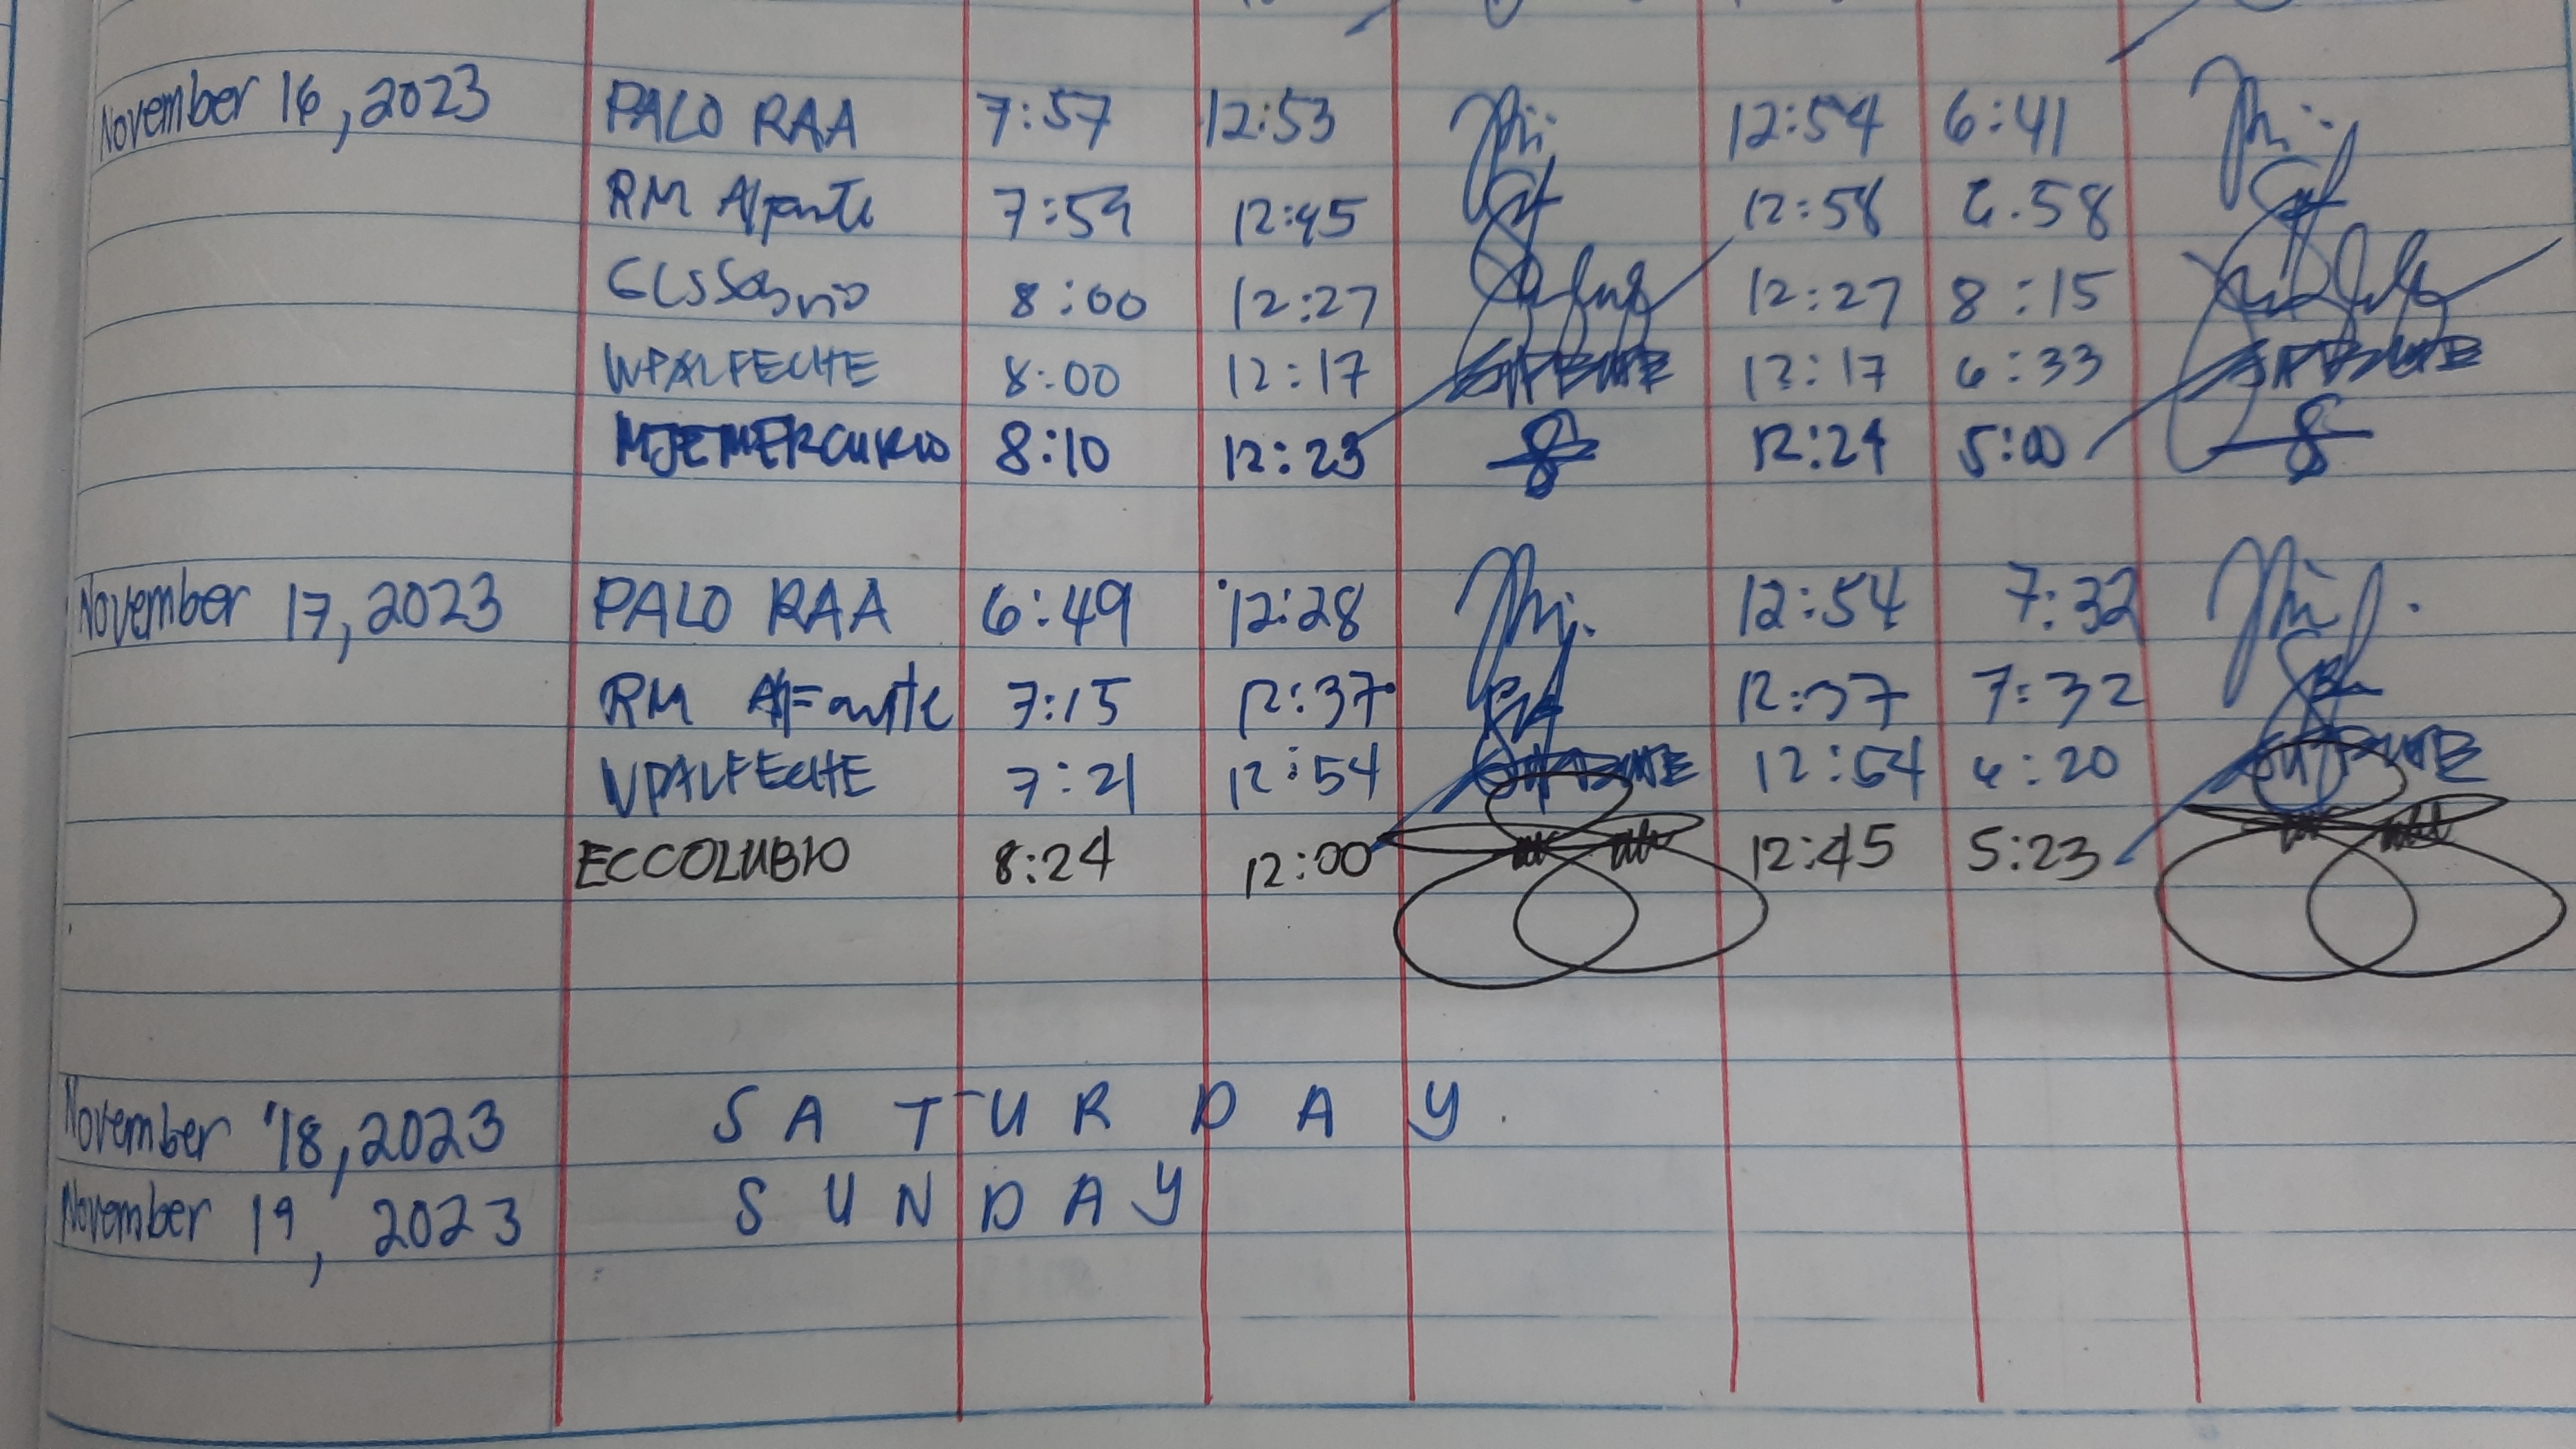 November 16, 2023 PALO RAA 7:57 12:53 12:54 6:41
RM Alfante 7:59 12:45 12:58 6.58
8:00 12:27 12:27 8:15
WPALFECHE 8:00 12:17 12:17 6:33
MJEMERCURIO 8:10 12:23 12:24 5:00
November 17, 2023 PALO RAA 6:49 12:28 12:54 7:32
RM Alfante 7:15 12:37 12:37 7:32
VPALFECHE 7:21 12:54 12:54 6:20
ECCOLUBIO 8:24 12:00 12:45 5:23
November 18, 2023 SATURDAY
November 19, 2023 SUNDAY